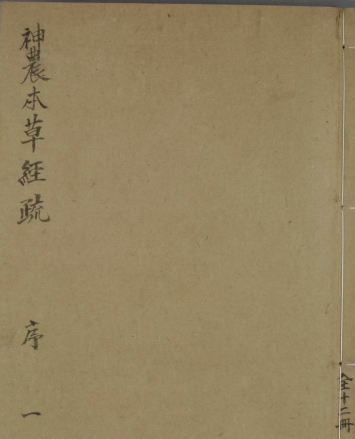 神農本草經疏 序 一
全十二冊